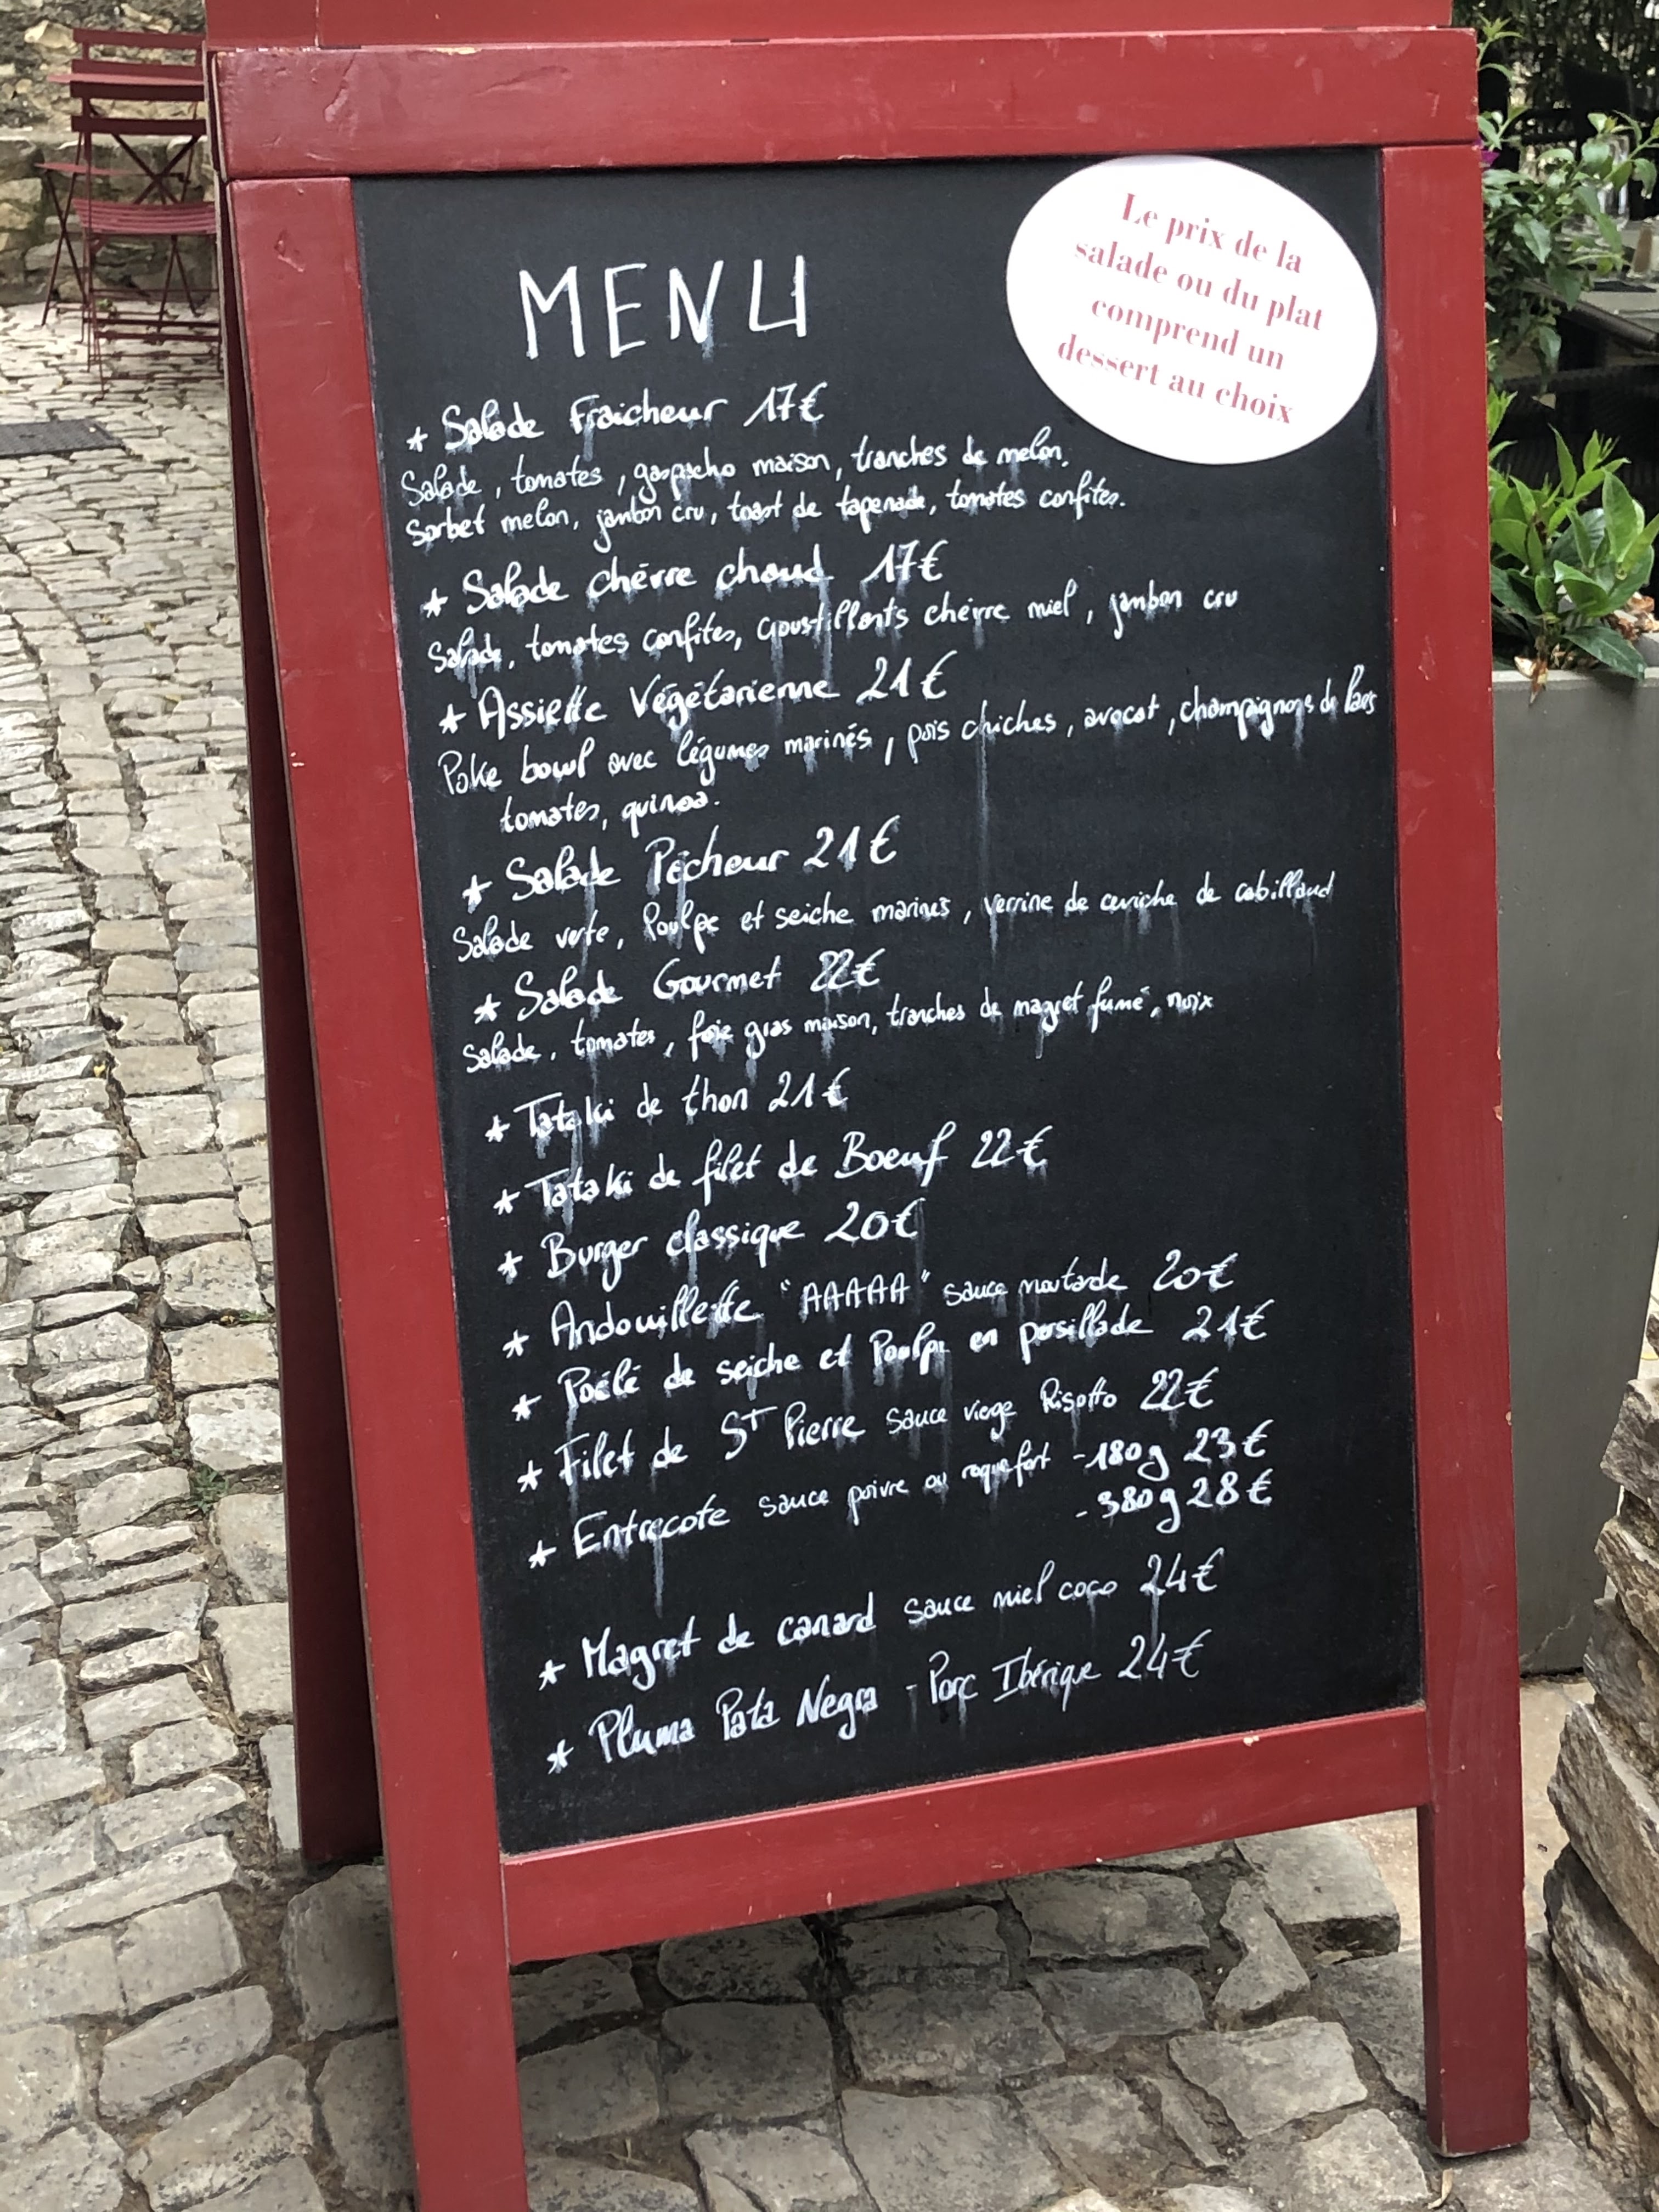 Le prix de la
salade ou du plat
comprend un
dessert au choix
MENU
* Salade Fraicheur 17€
Salade, tomates, gaspacho maison, tranches de melon.
Sorbet melon, jambon cru, toast de tapenade, tomates confites.
* Salade chèvre chaud 17€
Salade, tomates confites, croustillants chèvre miel, jambon cru
* Assiette Végétarienne 21€
Poke bowl avec légumes marinés, pois chiches, avocat, champignons de
tomates, quinoa.
* Salade Pêcheur 21€
Salade verte, Poulpe et seiche marinés, verrine de ceviche de cabillaud
* Salade Gourmet 22€
Salade, tomates, foie gras maison, tranches de magret fumé, noix
* Tataki de thon 21€
* Tataki de filet de Boeuf 22€
* Burger classique 20€
* Andouillette "AAAAA" sauce moutarde 20€
* Poêlé de seiche et Poulpe en persillade 21€
* Filet de ST Pierre sauce vierge Risotto 22€
* Entrecote sauce poivre ou roquefort -180g 23€
-380g 28€
* Magret de canard sauce miel coco 24€
* Pluma Pata Negra - Porc Ibérique 24€